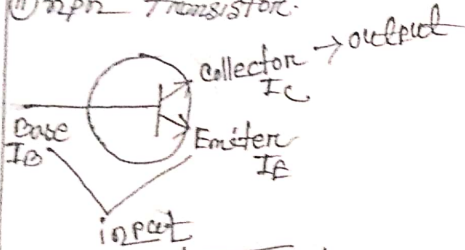 (ii) npn Transistor.
Collector → output
I_C
Base
I_B
Emitter
I_E
input